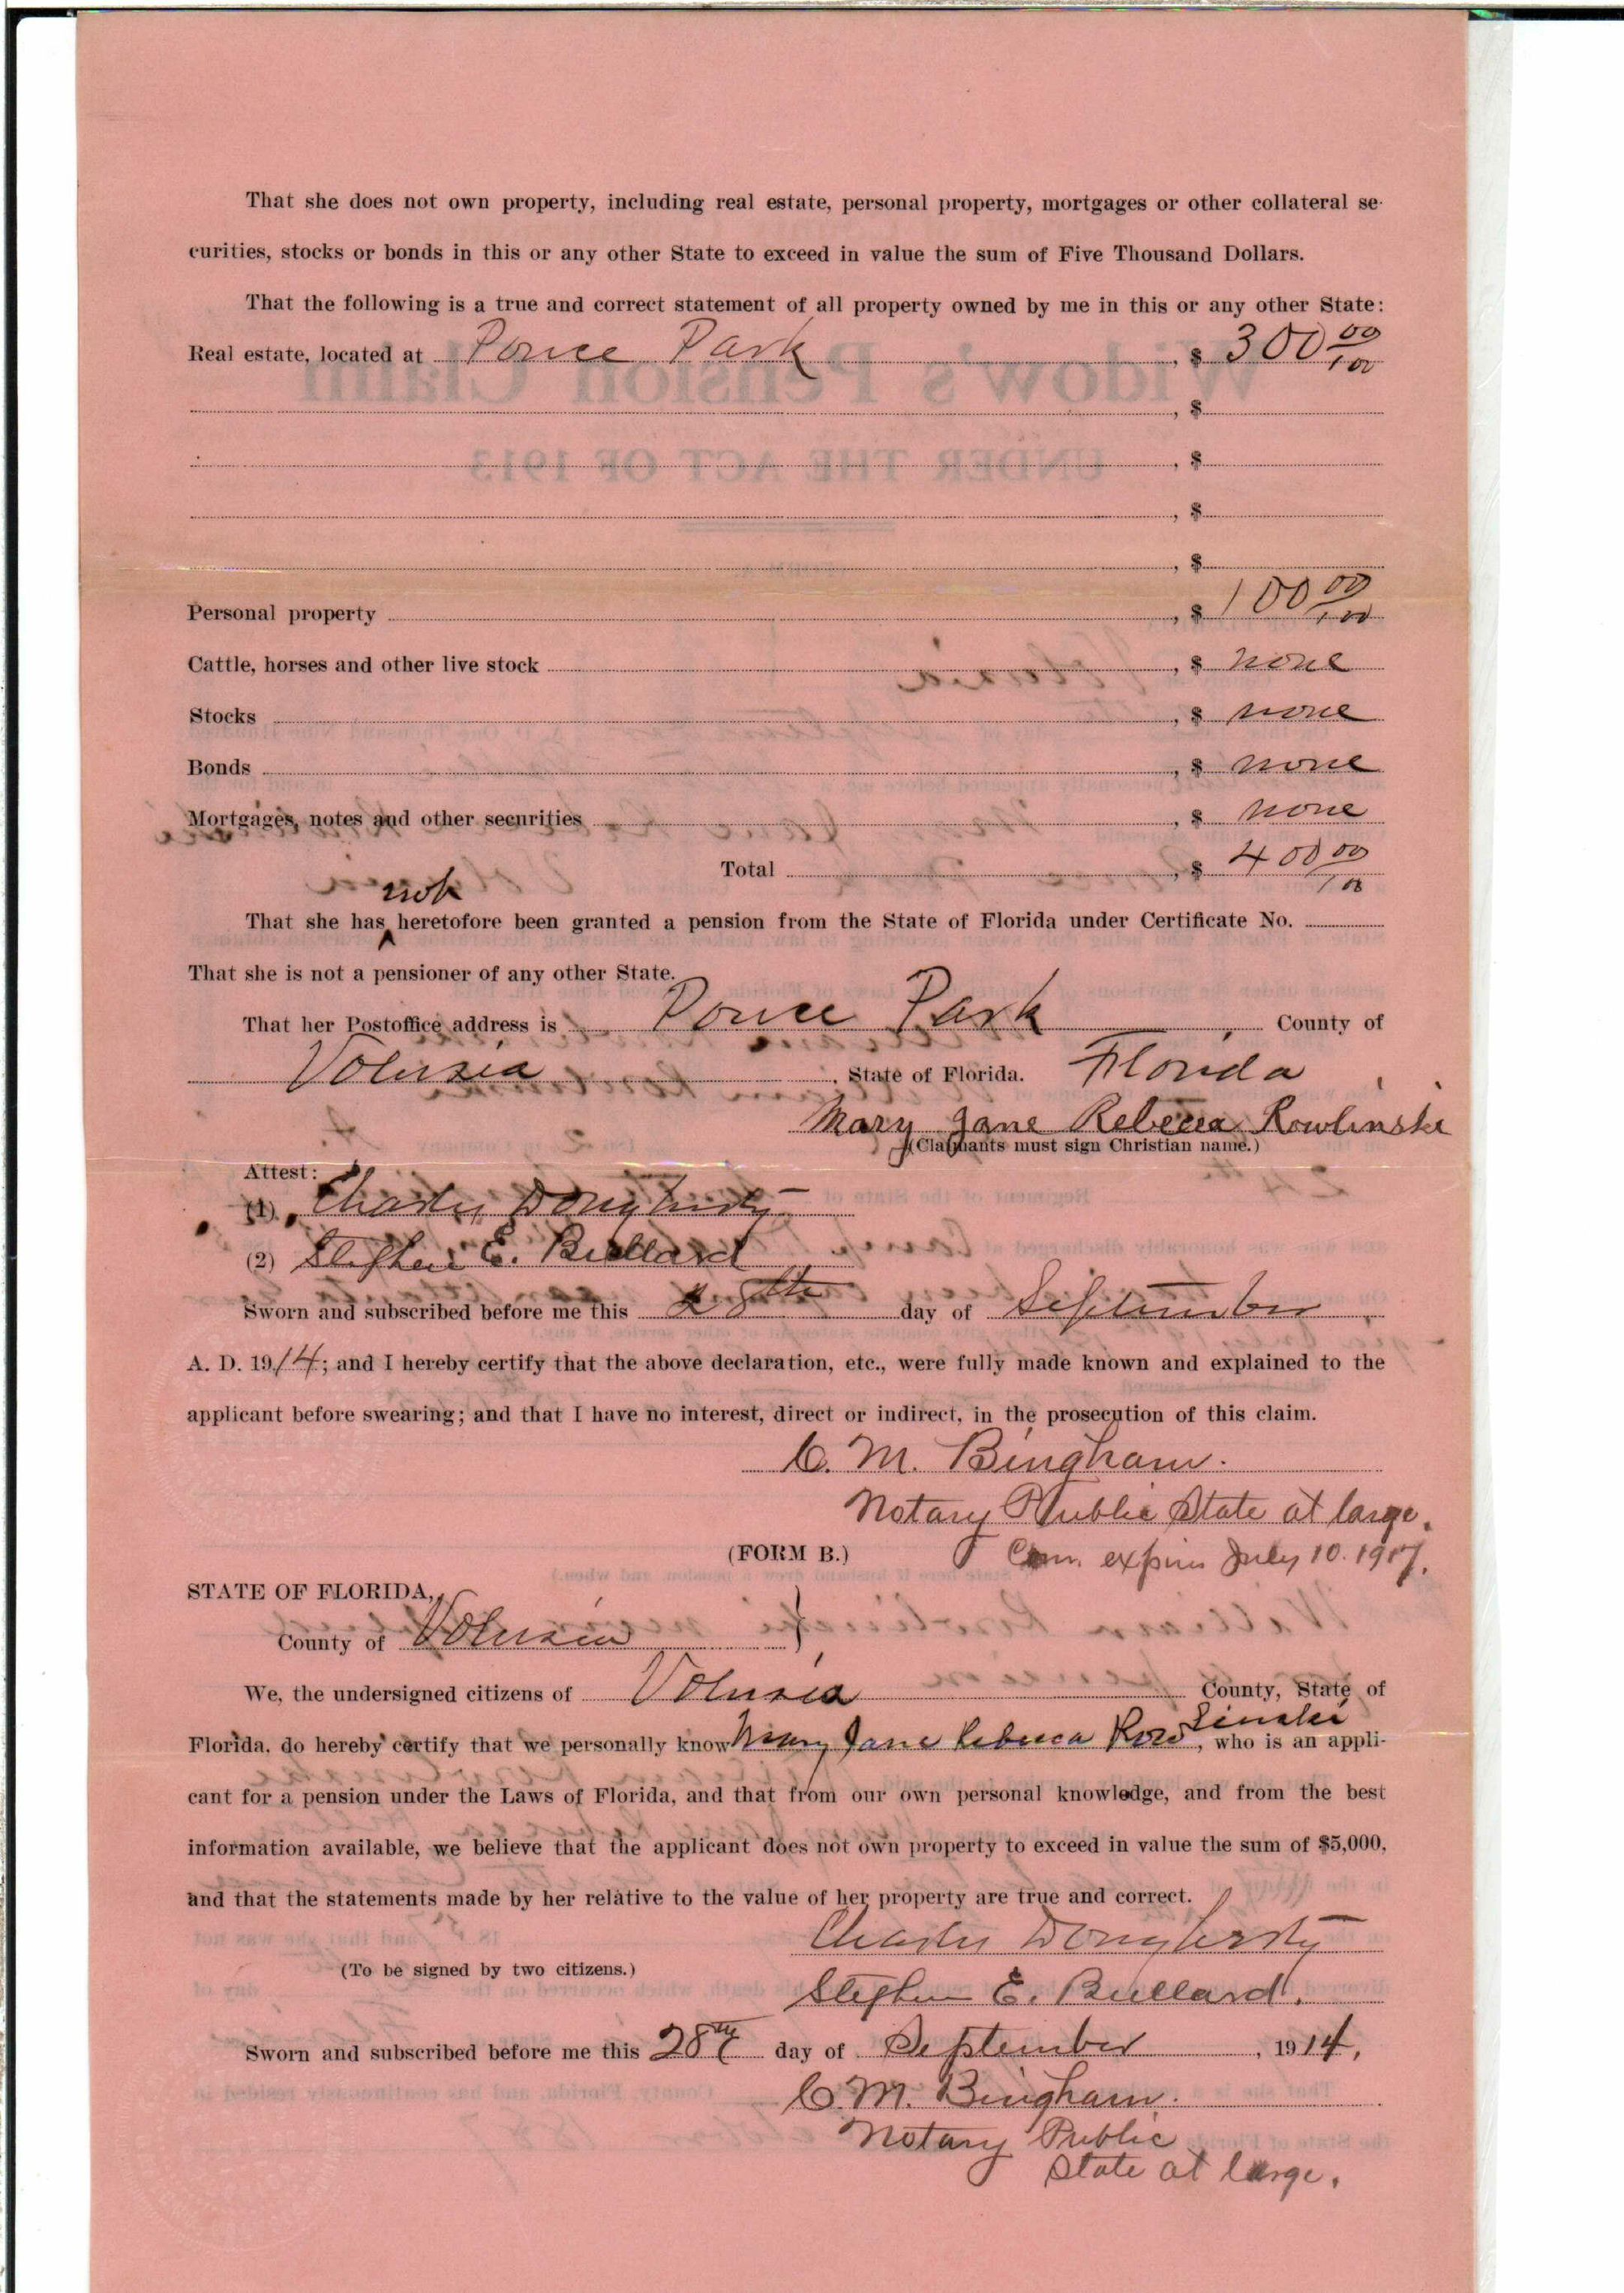 That she does not own property, including real estate, personal property, mortgages or other collateral se-
curities, stocks or bonds in this or any other State to exceed in value the sum of Five Thousand Dollars.
That the following is a true and correct statement of all property owned by me in this or any other State:
Real estate, located at Ponce Park, $ 300 00/100
, $
, $
, $
, $
Personal property, $ 100 00/100
Cattle, horses and other live stock, $ none
Stocks, $ none
Bonds, $ none
Mortgages, notes and other securities, $ none
Total, $ 400 00/100
not
That she has heretofore been granted a pension from the State of Florida under Certificate No.
That she is not a pensioner of any other State.
That her Postoffice address is Ponce Park, County of
Volusia, State of Florida. Florida
Mary Jane Rebecca Rowlinski
(Claimants must sign Christian name.)
Attest:
(1) Charles Dougherty
(2) Stephen E. Bullard
Sworn and subscribed before me this 28th day of September,
A. D. 1914; and I hereby certify that the above declaration, etc., were fully made known and explained to the
applicant before swearing; and that I have no interest, direct or indirect, in the prosecution of this claim.
C. M. Bingham.
Notary Public State at large.
(FORM B.) Com. expires July 10. 1917.
STATE OF FLORIDA,
County of Volusia
We, the undersigned citizens of Volusia County, State of
linski
Florida, do hereby certify that we personally know Mary Jane Rebecca Row, who is an appli-
cant for a pension under the Laws of Florida, and that from our own personal knowledge, and from the best
information available, we believe that the applicant does not own property to exceed in value the sum of $5,000,
and that the statements made by her relative to the value of her property are true and correct.
Charles Dougherty
(To be signed by two citizens.)
Stephen E. Bullard.
Sworn and subscribed before me this 28th day of September, 1914,
C. M. Bingham.
Notary Public
State at large.